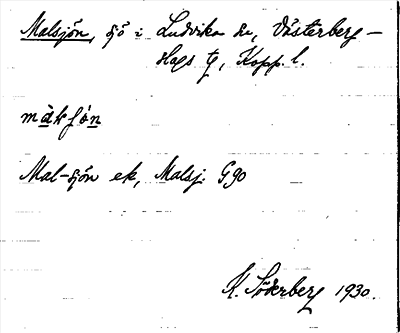 Malsjön, sjö i Ludvika sn, Västerberg-
slags tg, Kopp. l.
màkʃǒn
Mal-sjön ek, Malsj. G90
K. Söderberg 1930.